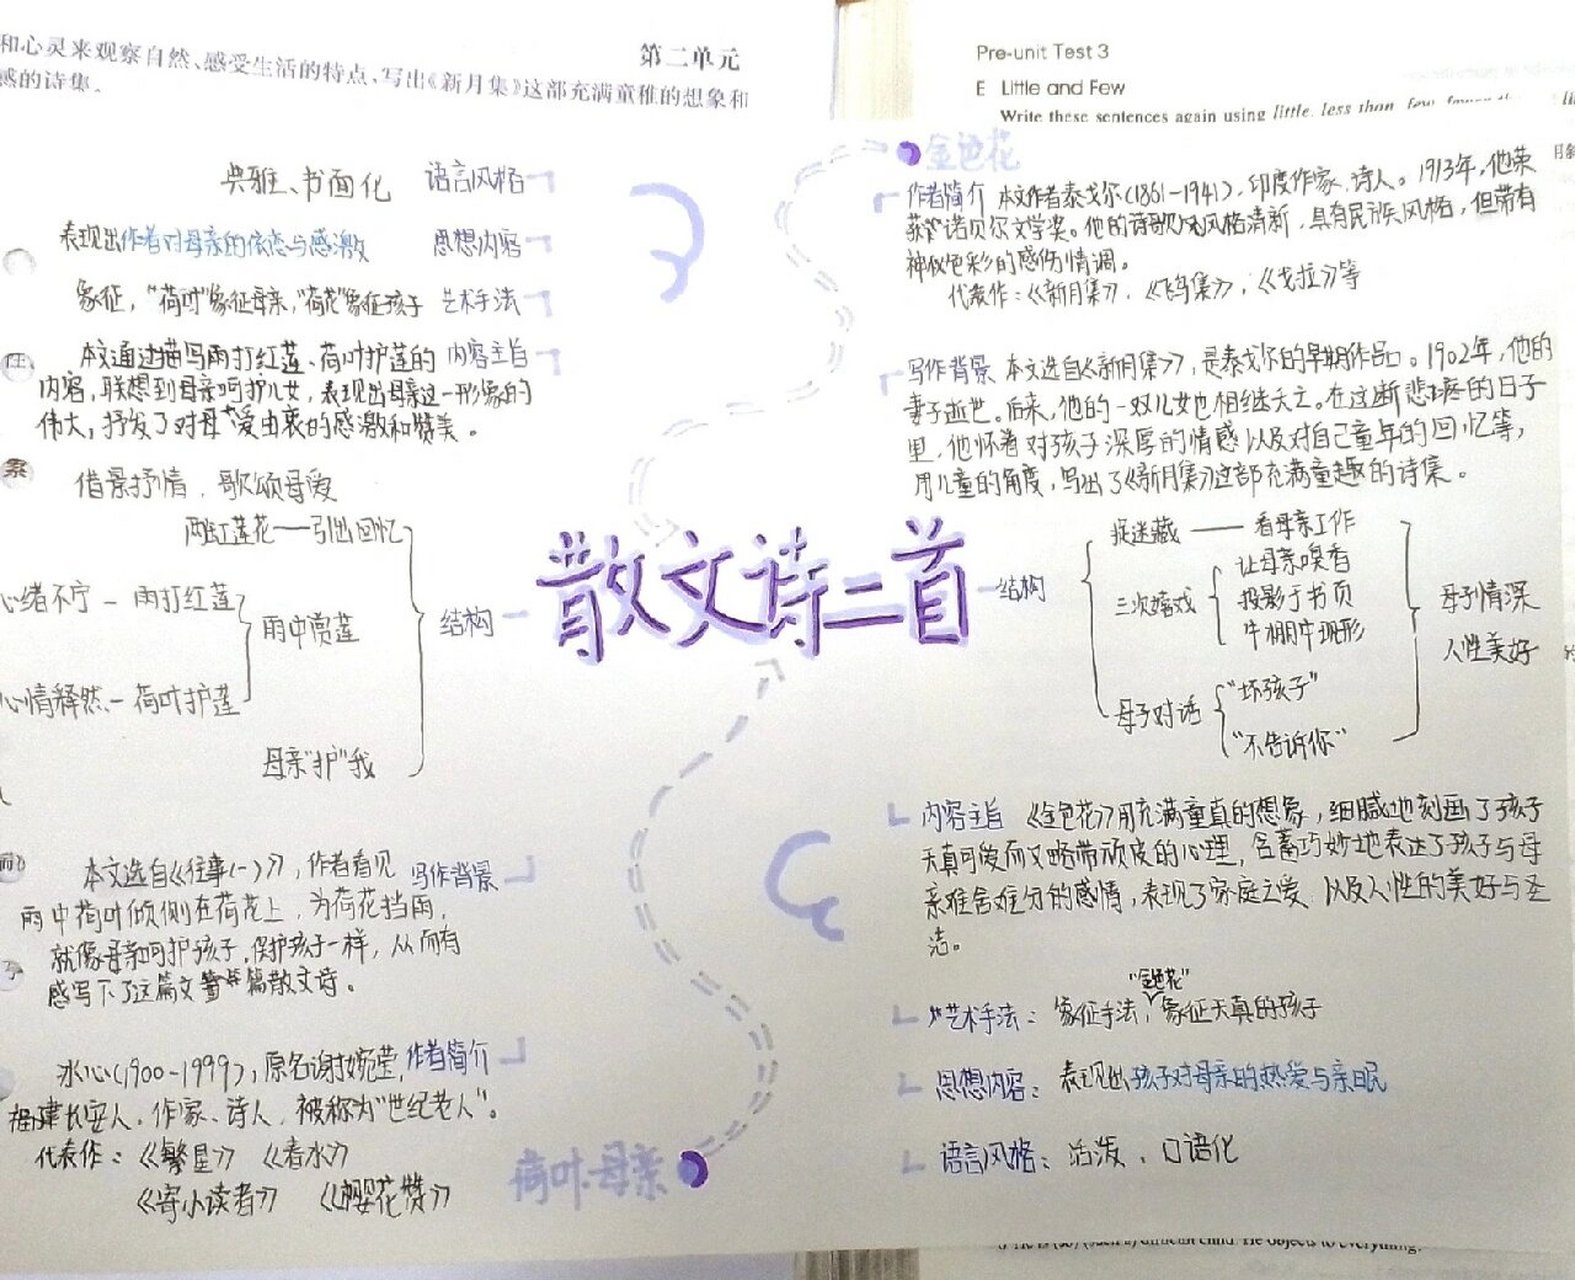 和心灵来观察自然、感受生活的特点,写出《新月集》这部充满童稚的想象和
感的诗集。
第二单元
Pre-unit Test 3
E Little and Few
Write these sentences again using little, less than, few,
散文诗二首
金色花
作者简介 本文作者泰戈尔(1861-1941),印度作家、诗人。1913年,他荣
获诺贝尔文学奖。他的诗歌风格清新,具有民族风格,但带有
神秘色彩的感伤情调。
代表作:《新月集》、《飞鸟集》、《戈拉》等
写作背景 本文选自《新月集》,是泰戈尔的早期作品。1902年,他的
妻子逝世。后来,他的一双儿女也相继夭亡。在这断悲疼的日子
里,他怀着对孩子深厚的情感以及对自己童年的回忆等,
用儿童的角度,写出了《新月集》这部充满童趣的诗集。
结构
捉迷藏——看母亲工作
三次嬉戏
让母亲嗅香
投影于书页
牛棚中现形
母子对话
“坏孩子”
“不告诉你”
母子情深
人性美好
内容主旨 《金色花》用充满童真的想象,细腻地刻画了孩子
天真可爱而又略带顽皮的心理,含蓄巧妙地表达了孩子与母
亲难舍难分的感情,表现了家庭之爱,以及人性的美好与圣
洁。
艺术手法:象征手法,“金色花”象征天真的孩子
思想内容:表现出孩子对母亲的热爱与亲昵
语言风格:活泼、口语化
典雅、书面化 语言风格
表现出作者对母亲的依恋与感激 思想内容
象征,“荷叶”象征母亲,“荷花”象征孩子 艺术手法
本文通过描写雨打红莲、荷叶护莲的 内容主旨
内容,联想到母亲呵护儿女,表现出母亲这一形象的
伟大,抒发了对母爱由衷的感激和赞美。
借景抒情,歌颂母爱
两缸莲花——引出回忆
心绪不宁-雨打红莲
雨中赏莲
心情释然-荷叶护莲
母亲“护”我
结构
本文选自《往事(一)》,作者看见 写作背景
雨中荷叶倾侧在荷花上,为荷花挡雨,
就像母亲呵护孩子、保护孩子一样,从而有
感写下了这篇文章 篇散文诗。
冰心(1900-1999),原名谢婉莹, 作者简介
福建长安人,作家、诗人,被称为“世纪老人”。
代表作:《繁星》 《春水》
《寄小读者》 《樱花赞》
荷叶·母亲
difficult child. He objects to everything.